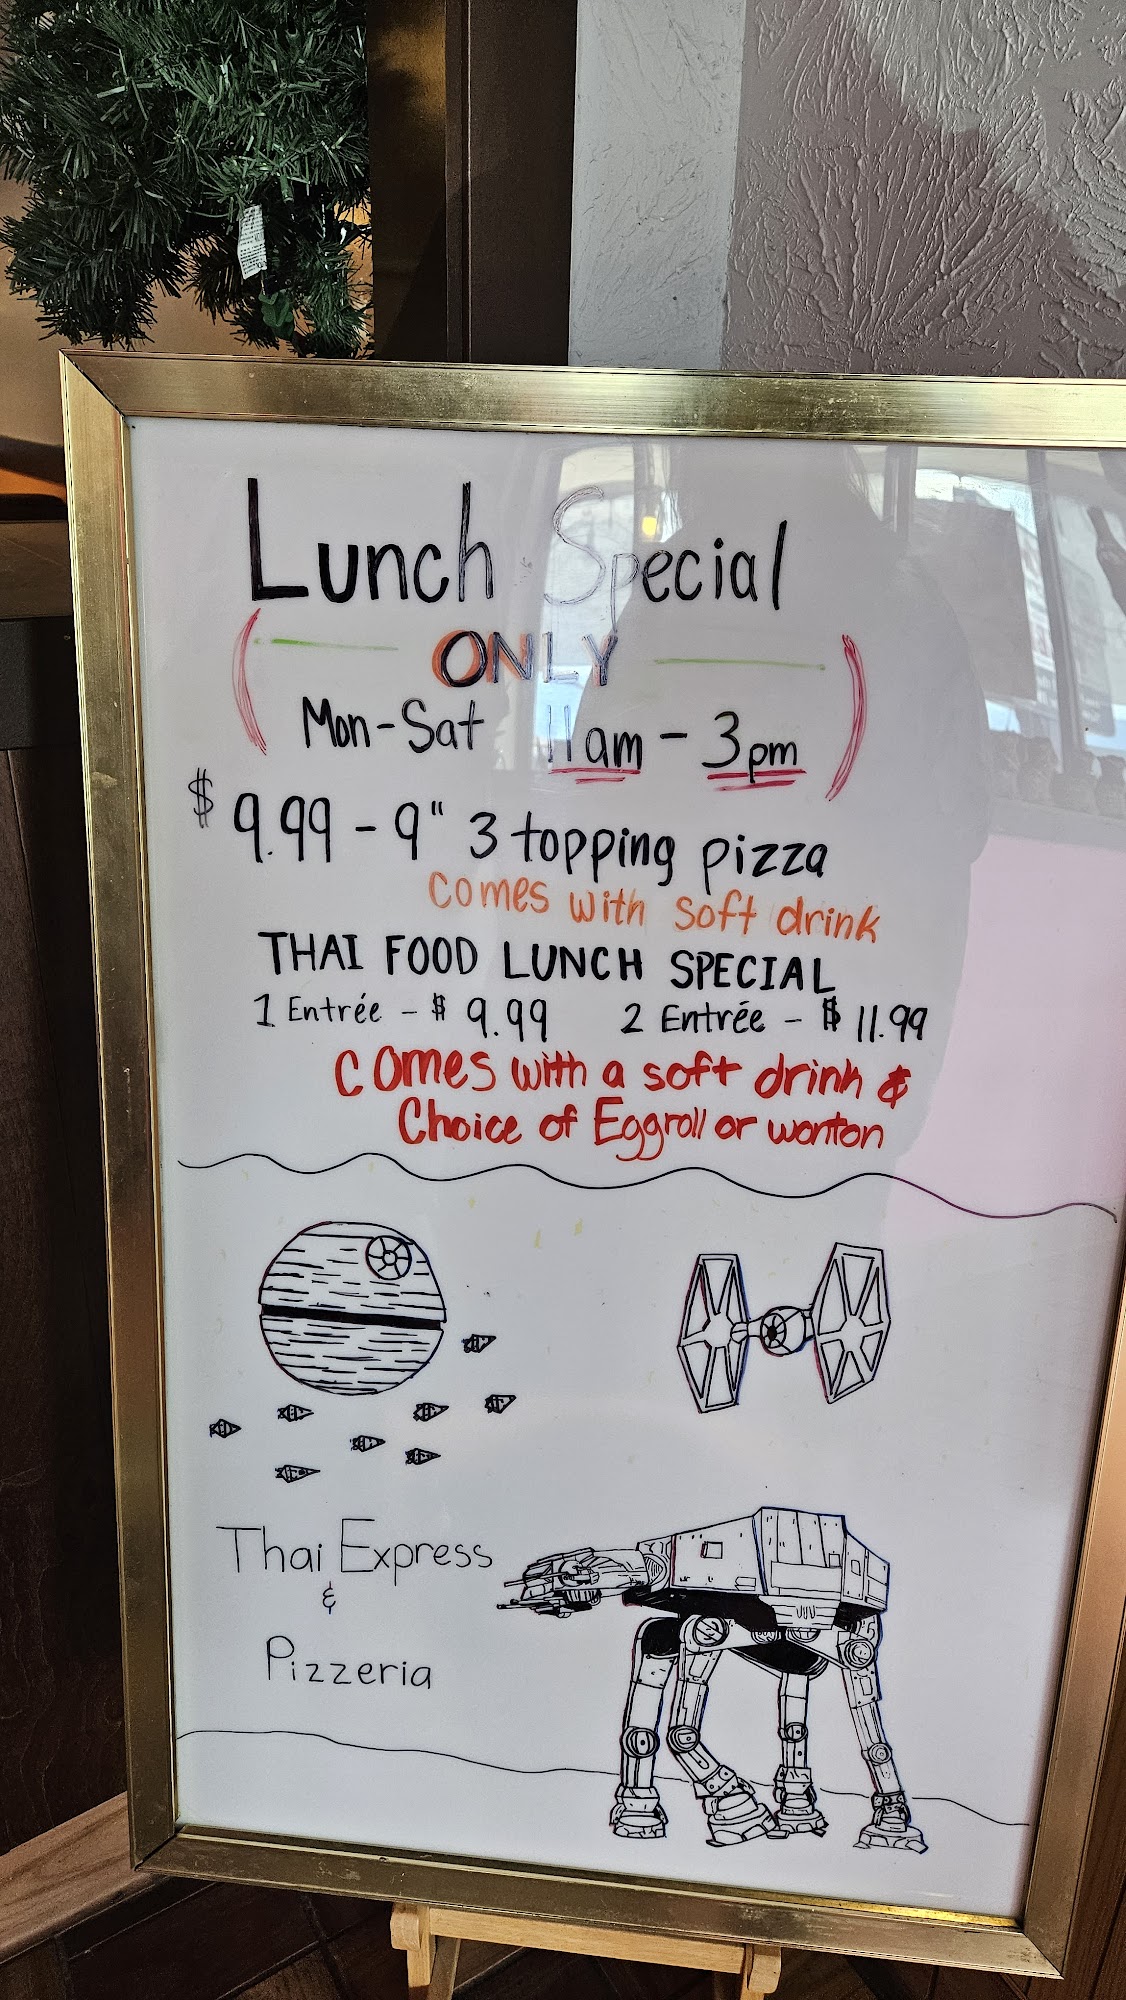 Lunch Special
ONLY
(Mon-Sat 11am - 3pm)
$ 9.99 - 9" 3 topping pizza
comes with soft drink
THAI FOOD LUNCH SPECIAL
1 Entrée - $ 9.99 2 Entrée - $ 11.99
comes with a soft drink &
Choice of Eggroll or wonton
Thai Express
&
Pizzeria